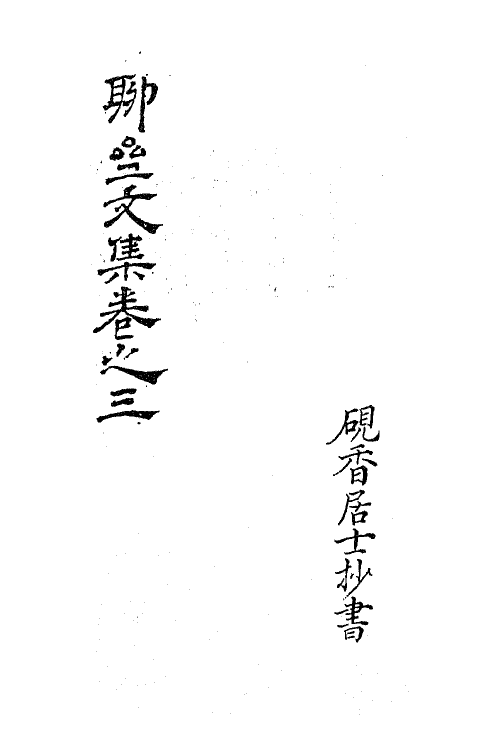 硯香居士抄書
聊亝文集卷之三